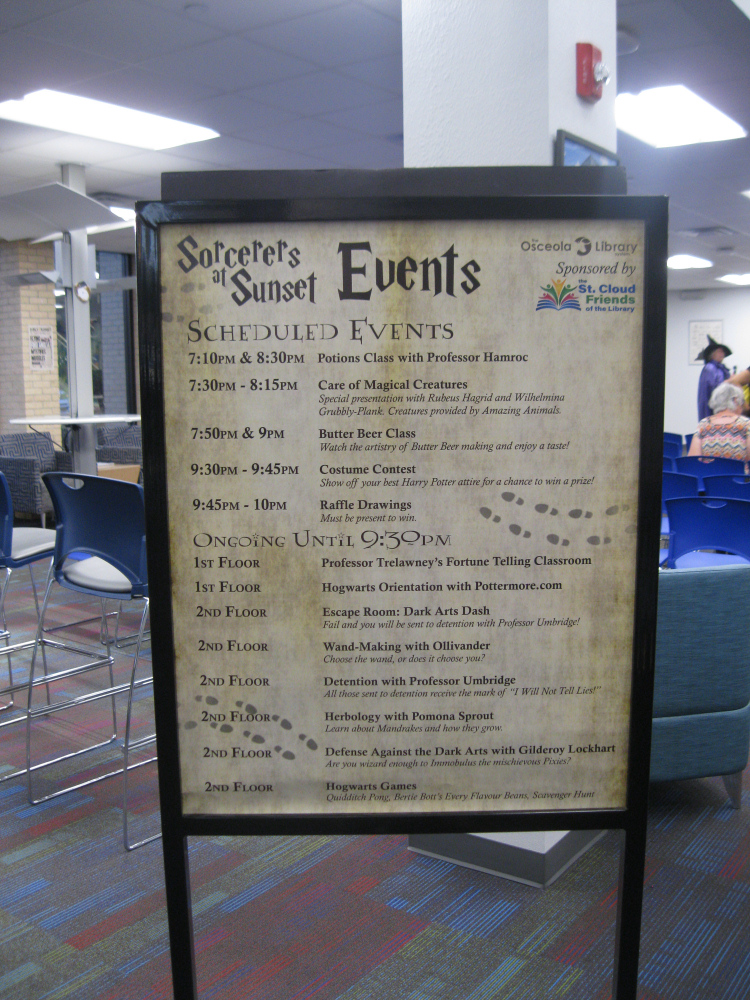 Sorcerers
at
Sunset
Events
the
Osceola Library
Sponsored by
the
St. Cloud
Friends
of the Library
Scheduled Events
7:10PM & 8:30PM Potions Class with Professor Hamroc
7:30PM - 8:15PM Care of Magical Creatures
Special presentation with Rubeus Hagrid and Wilhelmina
Grubbly-Plank. Creatures provided by Amazing Animals.
7:50PM & 9PM Butter Beer Class
Watch the artistry of Butter Beer making and enjoy a taste!
9:30PM - 9:45PM Costume Contest
Show off your best Harry Potter attire for a chance to win a prize!
9:45PM - 10PM Raffle Drawings
Must be present to win.
Ongoing Until 9:30PM
1ST FLOOR Professor Trelawney's Fortune Telling Classroom
1ST FLOOR Hogwarts Orientation with Pottermore.com
2ND FLOOR Escape Room: Dark Arts Dash
Fail and you will be sent to detention with Professor Umbridge!
2ND FLOOR Wand-Making with Ollivander
Choose the wand, or does it choose you?
2ND FLOOR Detention with Professor Umbridge
All those sent to detention receive the mark of "I Will Not Tell Lies!"
2ND FLOOR Herbology with Pomona Sprout
Learn about Mandrakes and how they grow.
2ND FLOOR Defense Against the Dark Arts with Gilderoy Lockhart
Are you wizard enough to Immobulus the mischievous Pixies?
2ND FLOOR Hogwarts Games
Quidditch Pong, Bertie Bott's Every Flavour Beans, Scavenger Hunt